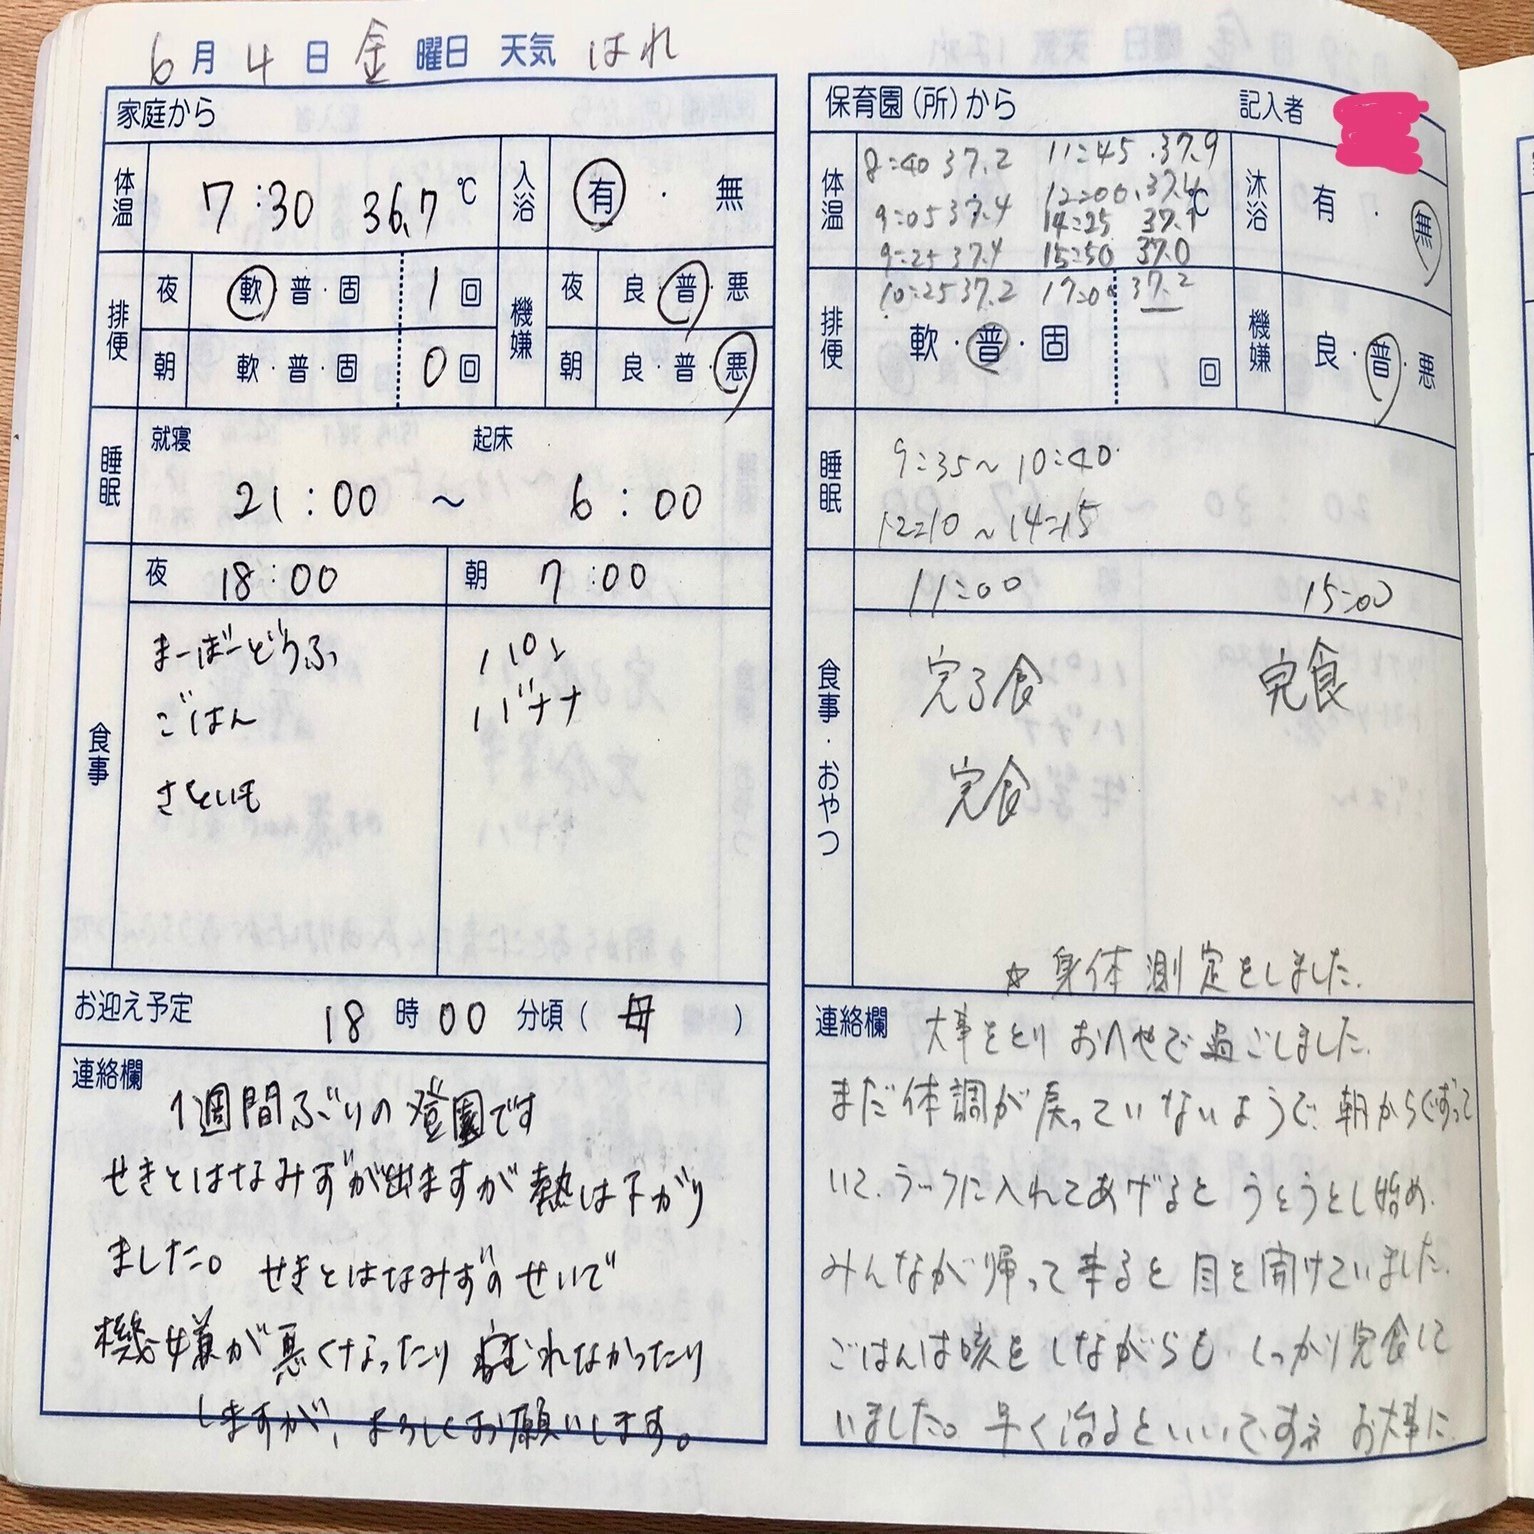 6月4日 金曜日 天気 はれ
家庭から
体温 7:30 36.7 ℃ 入浴 有・無
排便 夜 軟・普・固 1回 機嫌 夜 良・普・悪
朝 軟・普・固 0回 朝 良・普・悪
睡眠 就寝 起床
21:00 ~ 6:00
食事 夜 18:00 朝 7:00
まーぼーどうふ パン
ごはん バナナ
さといも
お迎え予定 18時00分頃(母)
連絡欄
1週間ぶりの登園です
せきとはなみずが出ますが熱は下がり
ました。せきとはなみずのせいで
機嫌が悪くなったり ねむれなかったり
しますが、よろしくお願いします。
保育園(所)から 記入者
体温 8:40 37.2 11:45 37.9 ℃ 沐浴 有・無
12:00
9:05 37.4 14:25
9:25 37.4 15:50 37.0
10:25 37.2 17:00 37.2
排便 軟・普・固 回 機嫌 良・普・悪
睡眠 9:35~10:40
12:10~14:15
食事・おやつ 11:00 15:00
完了食 完食
完食
☆身体測定をしました.
連絡欄 大事をとり おへやで過ごしました.
まだ体調が戻っていないようで、朝からぐずって
いて、ラックに入れてあげると うとうとし始め、
みんなが帰って来ると目を開けていました.
ごはんは咳をしながらも しっかり完食して
いました。早く治るといいですね お大事に.